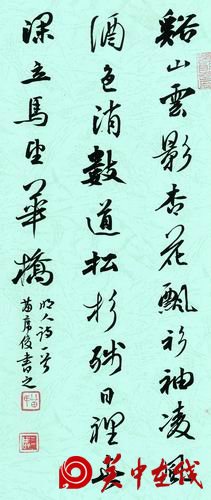 谿山雲影杏花飄衫袖凌風
酒色消數道松杉殘日裡興
深立馬望華橋
明人詩一首
書之
华中在线